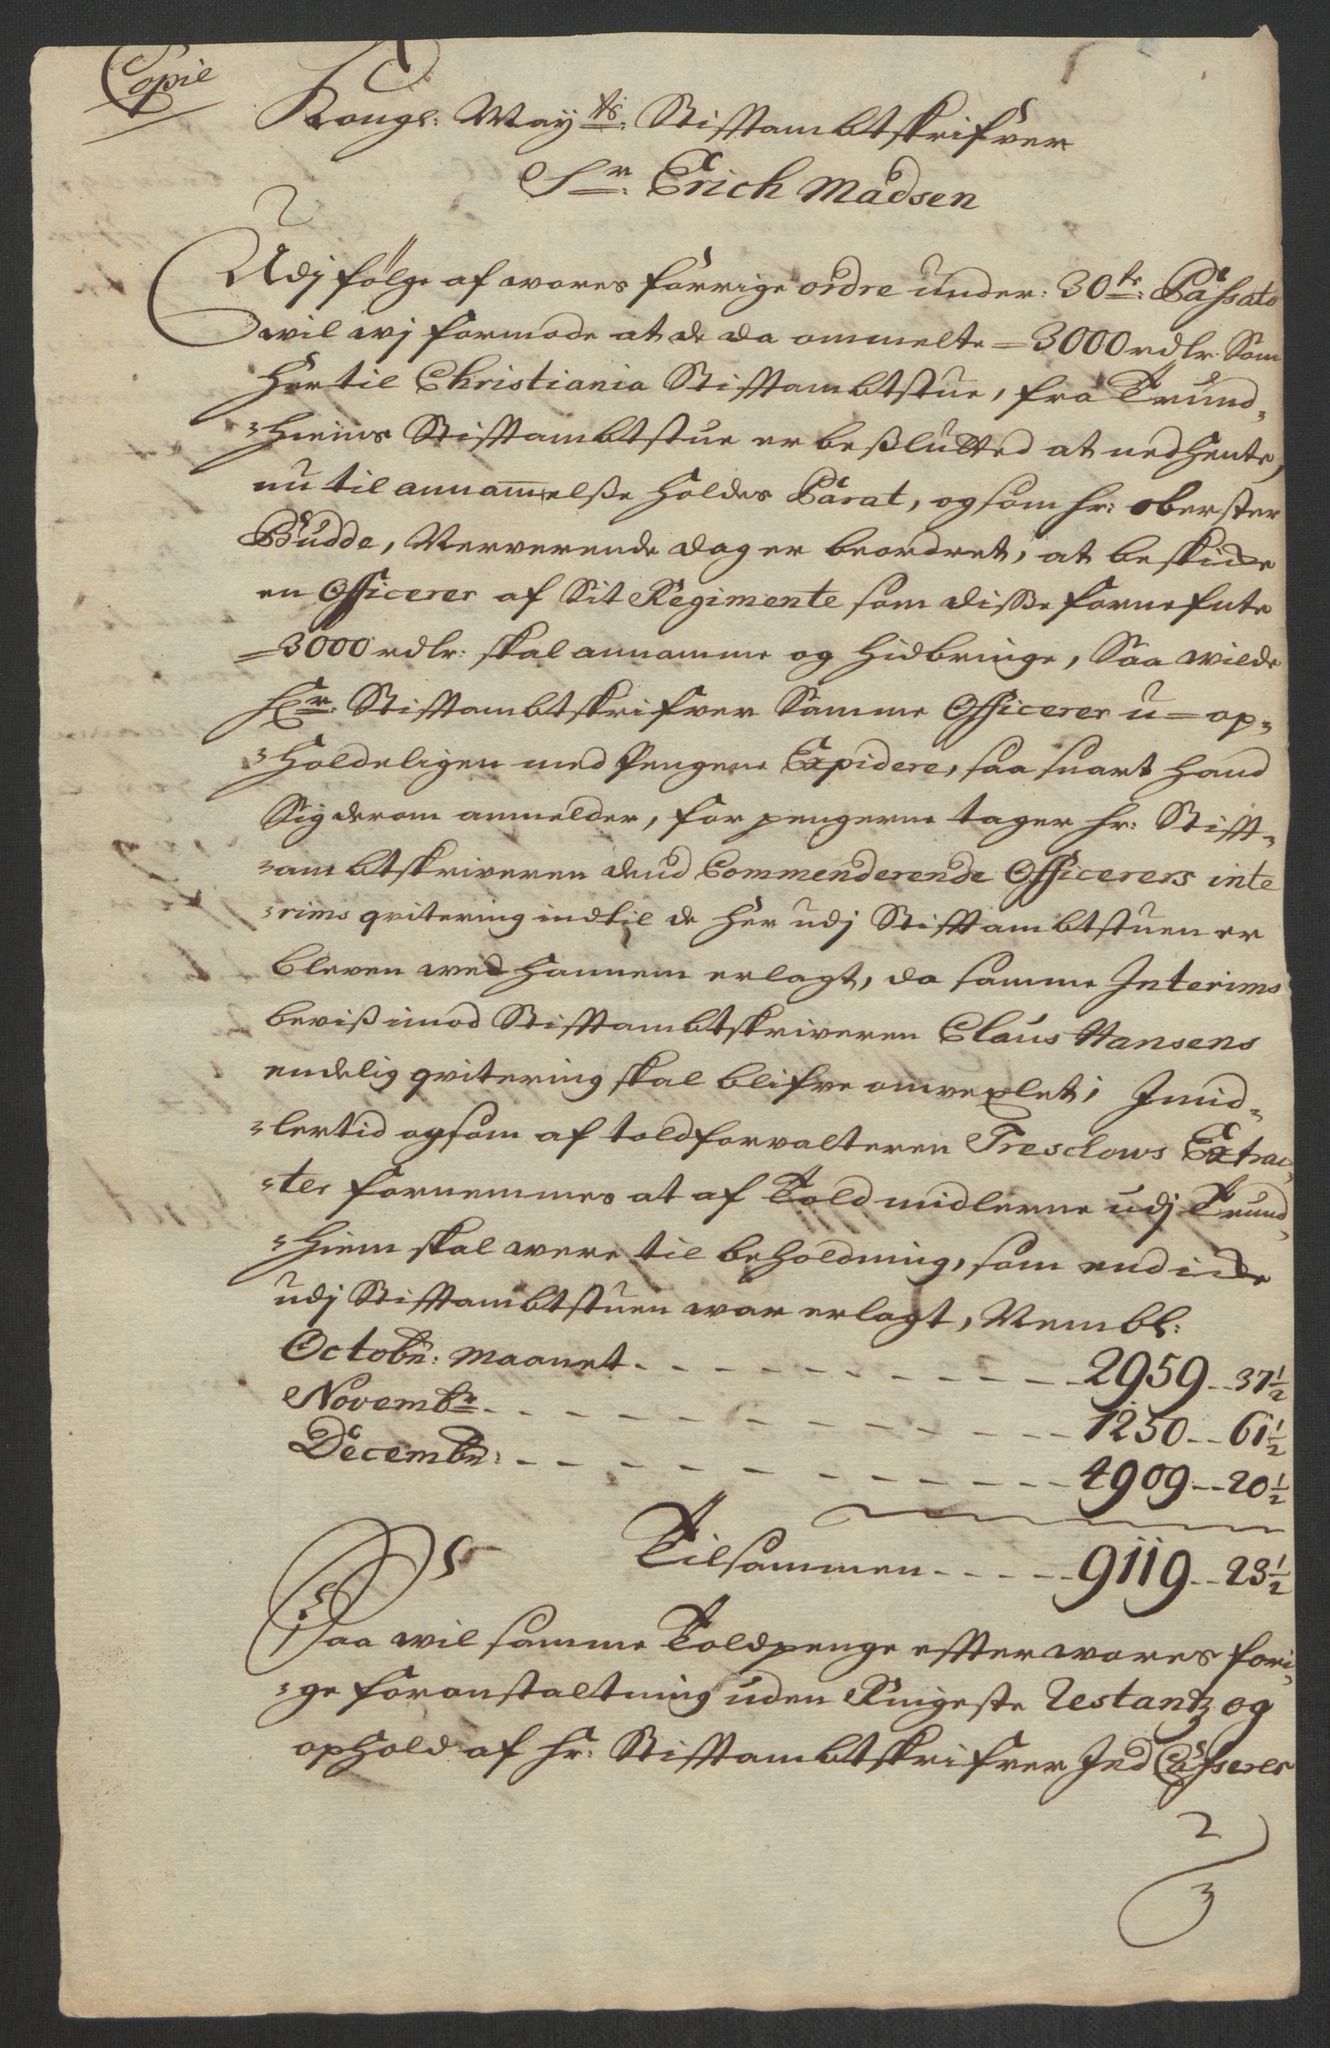 Copie
Kongl: May.ts: Stifftambtskrifver
Sr: Erich Madsen
Udj følge af wores forrige ordre under: 30te: Passato
wil wj formode at de da ommelte =3000 rdlr. Som
Her til Christiania Stifftambtstue, fra Trund-
-hiems Stifftambtstue er beßlutted at nedhente,
nu til annammelße holdes Parat, og som hr: oberster
Budde, Nerverende dag er beordret, at beskicke
en Officerer af Sit Regimente som disße fornefnte
=3000 rdlr: skal annamme og hidbringe, Saa wilde
Hr: Stifftambtskrifver Samme Officerer u=op-
-holdeligen med Pengene Expidere, saa snart hand
Sig derom anmelder, for pengerne tager hr: Stifft-
-ambtskriveren dend Commenderende Officerers inte
-rims qvitering indtil de her udj Stifftambtstuen er
bleven wed hannem erlagt, da samme Interims
beviß imod Stifftambtskriveren Claus Hansens
endelig qvitering skal blifve omvexlet; Imid-
-lertid ogsom af toldforvalteren Tresclows Extrac-
-ter fornemmes at af Toldmidlerne udj Trund-
-hiem skal were til beholdning, som end icke
udj Stifftambtstuen war erlagt, Nembl:
Octobr: Maanet - - - 2959 - - 37½
Novembr - - - 1250 - - 61½
Decembr: - - - 4909 - - 20½
Tilsammen - - - 9119 - - 23½
Saa wil samme Toldpenge effter wores fori-
-ge foranstaltning uden Ringeste Restantz og
ophold af hr: Stifftambtskrifver Ind Casseres